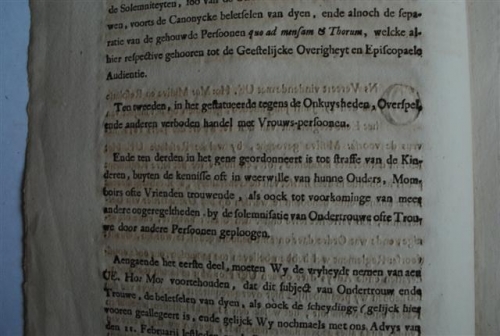 de Solemniteyten, soo van de
wen, voorts de Canonycke beletselen van dyen, ende alnoch de sepa-
ratie van de gehouwde Persoonen quo ad mensam & Thorum, welcke al-
hier respective gehooren tot de Geestelijcke Overigheyt en Episcopaele
Audientie.
Ten tweeden, in het gestatueerde tegens de Onkuysheden, Overspel,
ende anderen verboden handel met Vrouws-persoonen.
Ende ten derden in het gene geordonneert is tot straffe van de Kin-
deren, buyten de kennisse oft in weerwille van hunne Ouders, Mom-
boirs ofte Vrienden trouwende, als oock tot voorkominge van meer
andere ongeregeltheden, by de solemnisatie van Ondertrouwe ofte Trou-
we door andere Persoonen geploogen.
Aengaende het eerste deel, moeten Wy de vryheydt nemen van aen
UE. Ho: Mo: voortehouden, dat dit subject van Ondertrouw ende
Trouwe, de beletselen van dyen, als oock de scheydinge (gelijck hier
vooren geallegeert is, ende gelijck Wy nochmaels met ons Advys van
den 11. Februarii lestleden